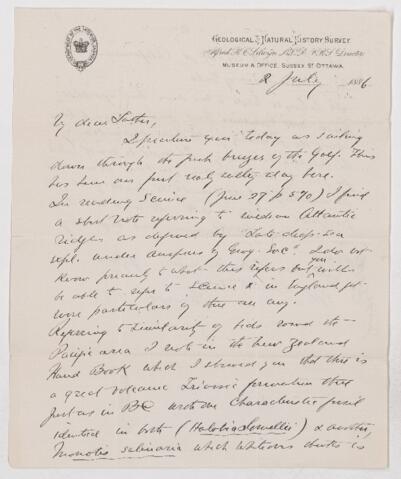 GEOLOGICAL & NATURAL HISTORY SURVEY
Alfred R. C. Selwyn, LL.D. F.R.S. Director
MUSEUM & OFFICE, SUSSEX ST OTTAWA.
2 July 1886
My dear Father,
I picture you today as sailing
down through the fresh breezes of the Gulf. This
has been our first really sultry day here.
In reading Science (June 27 p 570) I find
a short note referring to medium Atlantic
ridges as defined by late deep-sea
expl. under auspices of Geog. Soc. I do not
know precisely to what this refers but you will
be able to refer to Science in England &
more particulars if there are any.
Referring to similarity of beds round the
Pacific area I note in the New Zealand
Hand Book which I showed you that there is
a great volcanic Triassic formation there
just as in B.C. with one characteristic fossil
identical in both (Halobia Lomellii) & another,
Monotis salinaria which Whiteaves doubts is